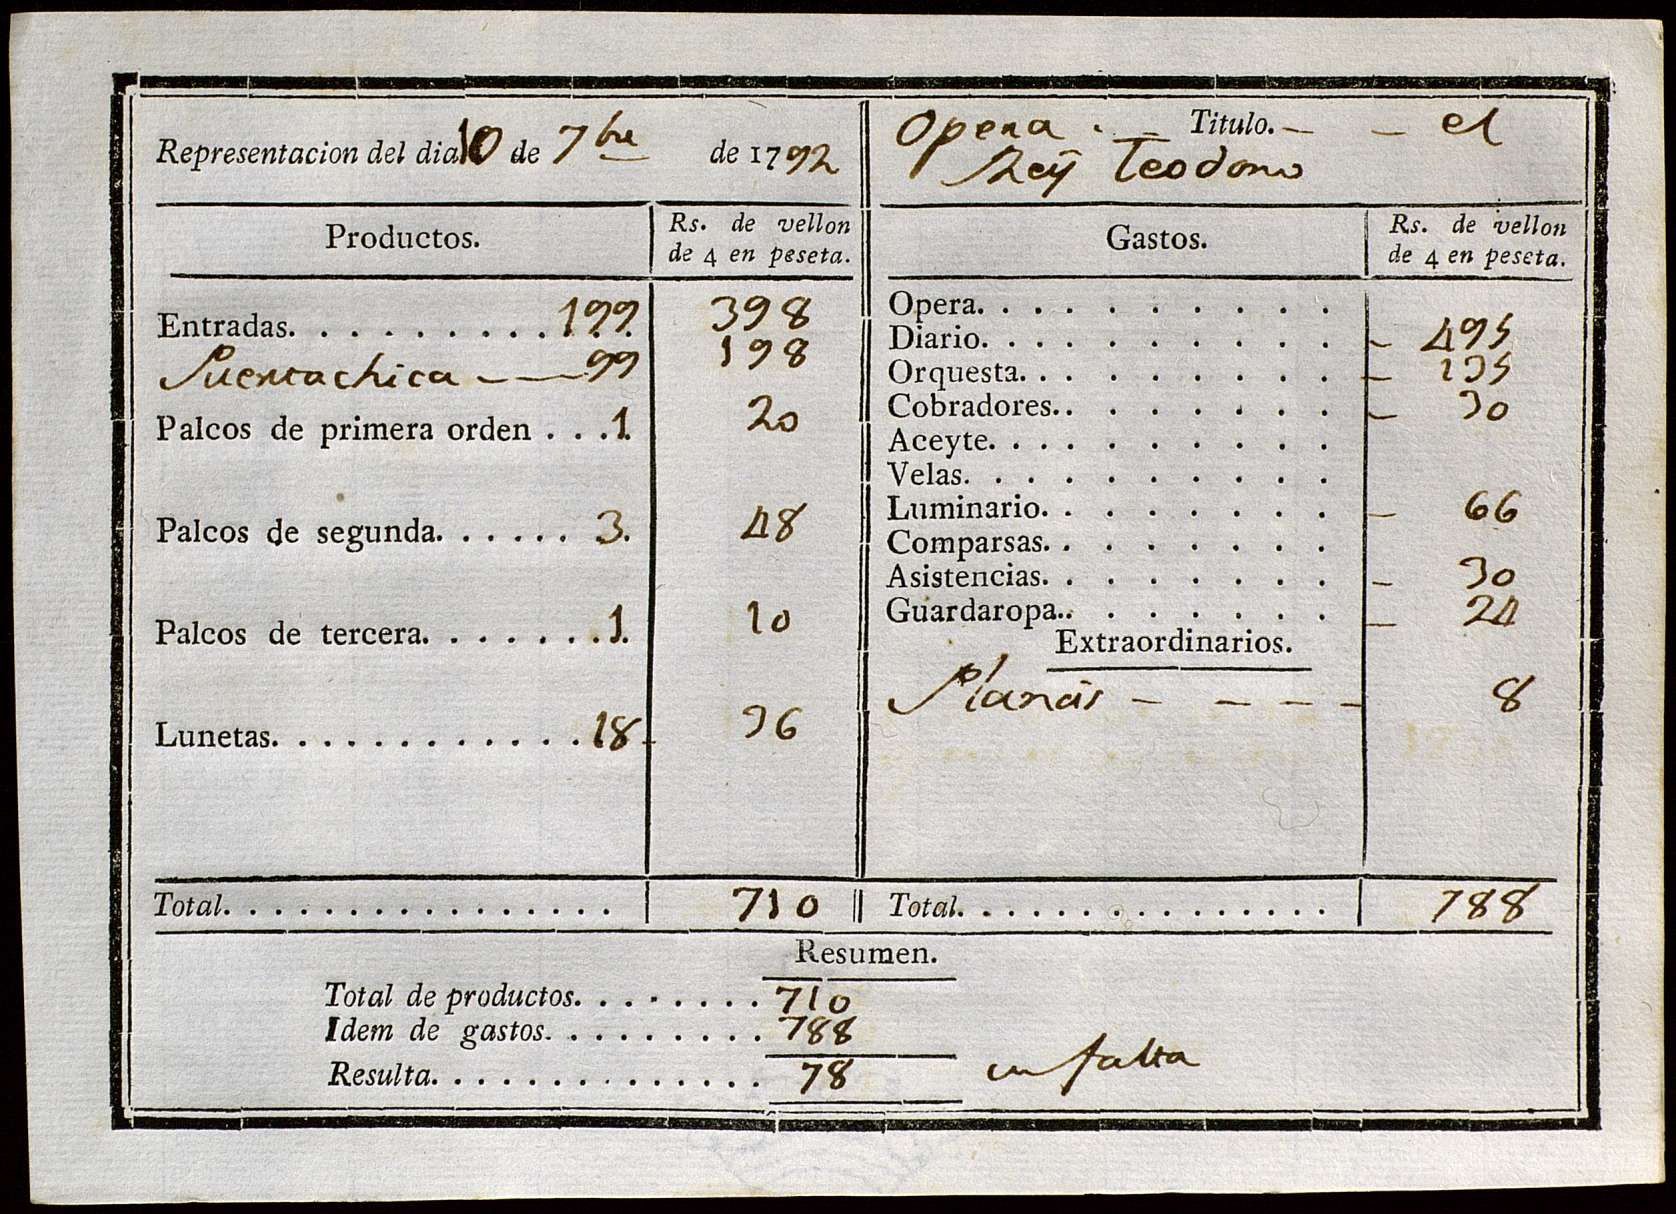 Representacion del dia 10 de 7bre de 1792
Opera. - Titulo. - - el
Rey Teodoro
Productos.
Rs. de vellon
de 4 en peseta.
Entradas. . . . . . . . . . . 199. 398
Puertachica - - 99 198
Palcos de primera orden . . . 1. 20
Palcos de segunda. . . . . . 3. 48
Palcos de tercera. . . . . . . 1. 10
Lunetas. . . . . . . . . . . . . 18 - 36
Total. . . . . . . . . . . . . . . . 710
Gastos.
Rs. de vellon
de 4 en peseta.
Opera. . . . . . . . . .
Diario. . . . . . . . . . - 495
Orquesta. . . . . . . . . - 135
Cobradores.. . . . . . . - 30
Aceyte. . . . . . . . . .
Velas. . . . . . . . . .
Luminario. . . . . . . . - 66
Comparsas. . . . . . . .
Asistencias. . . . . . . . - 30
Guardaropa.. . . . . . . - 24
Extraordinarios.
Planás - - - - - 8
Total. . . . . . . . . . . . . . . . 788
Resumen.
Total de productos. . . . . . . . 710
Idem de gastos. . . . . . . . . . 788
Resulta. . . . . . . . . . . . . . 78 en falta